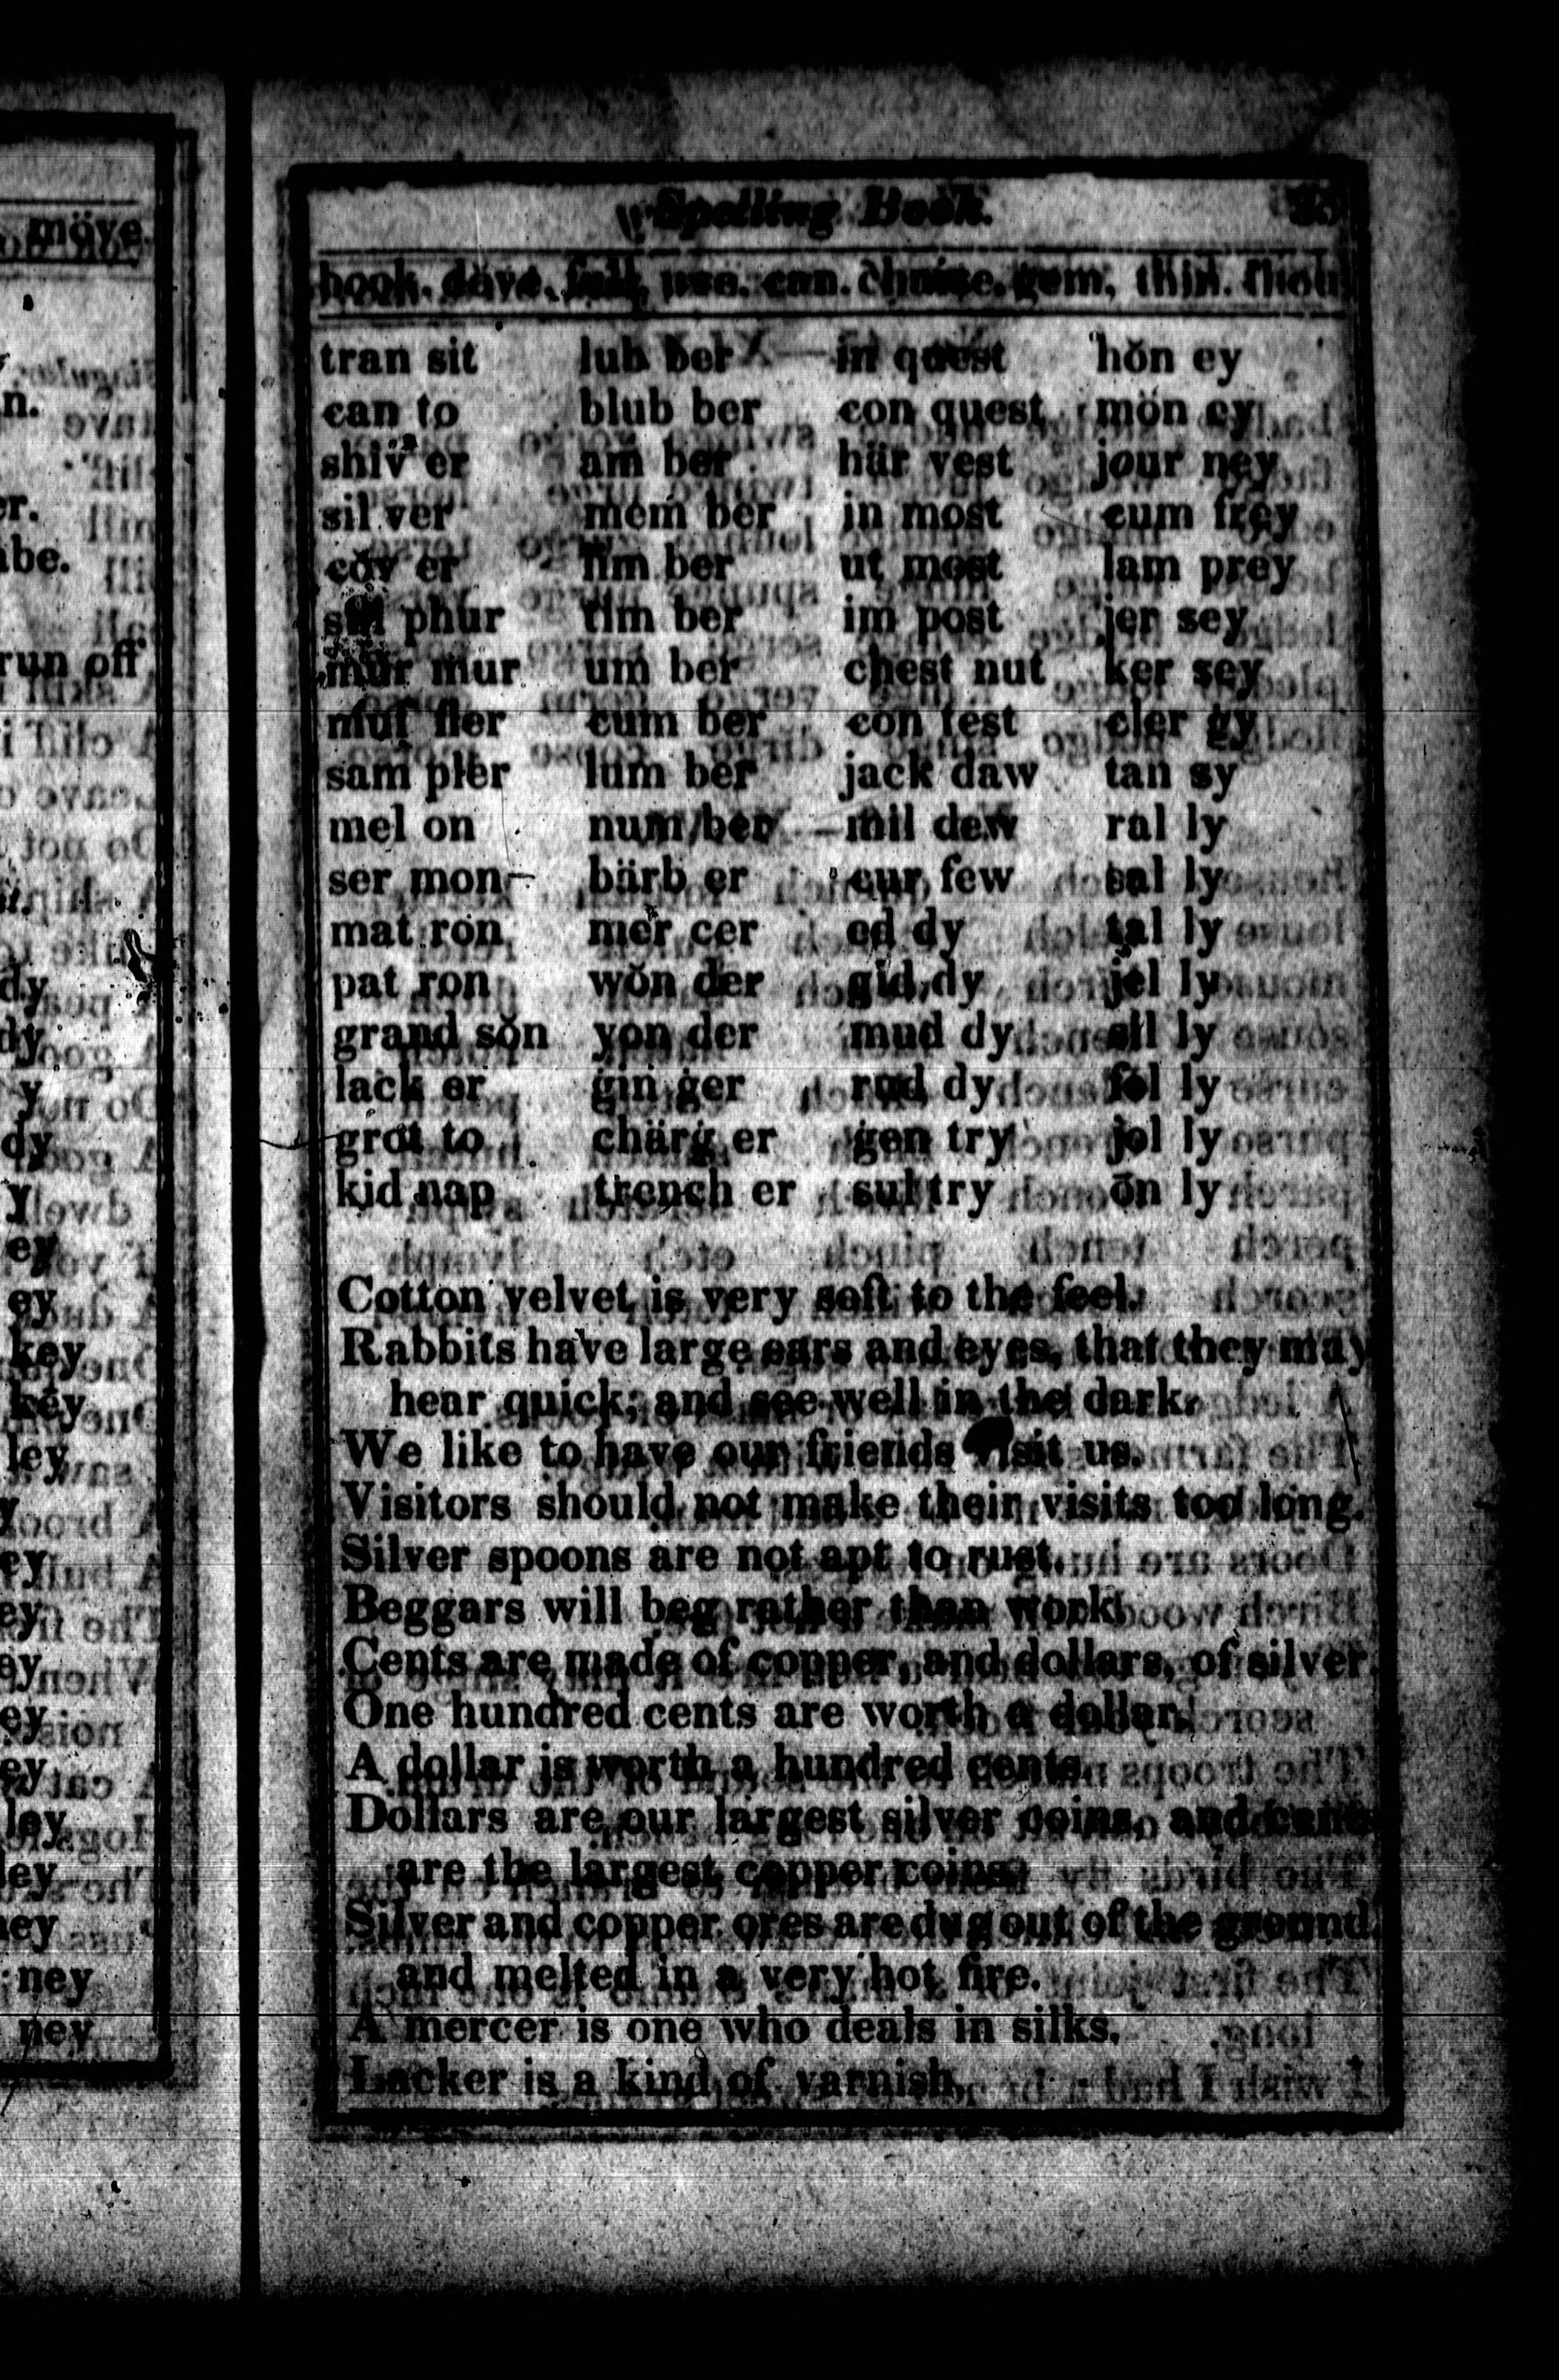 Spelling Book. 35
book. dove. full. use. can. chaise. gem. thin. thou
tran sit lub ber in quest hŏn ey
can to blub ber con quest mŏn ey
shiv er am ber här vest jour ney
sil ver mem ber in most cum frey
cŏv er lim ber ut most lam prey
sul phur tim ber im post jer sey
mur mur um ber chest nut ker sey
muf fler cum ber con test cler gy
sam pler lum ber jack daw tan sy
mel on num ber mil dew ral ly
ser mon bärb er cur few sal ly
mat ron mer cer ed dy tal ly
pat ron wŏn der gid dy jel ly
grand sŏn yon der mud dy sil ly
lack er gin ger rud dy fol ly
grot to chärg er gen try jol ly
kid nap trench er sul try ōn ly
Cotton velvet is very soft to the feel.
Rabbits have large ears and eyes, that they may
hear quick, and see well in the dark.
We like to have our friends visit us.
Visitors should not make their visits too long.
Silver spoons are not apt to rust.
Beggars will beg rather than work.
Cents are made of copper, and dollars, of silver.
One hundred cents are worth a dollar.
A dollar is worth a hundred cents.
Dollars are our largest silver coins, and cents
are the largest copper coins.
Silver and copper ores are dug out of the ground
and melted in a very hot fire.
A mercer is one who deals in silks.
Lacker is a kind of varnish.